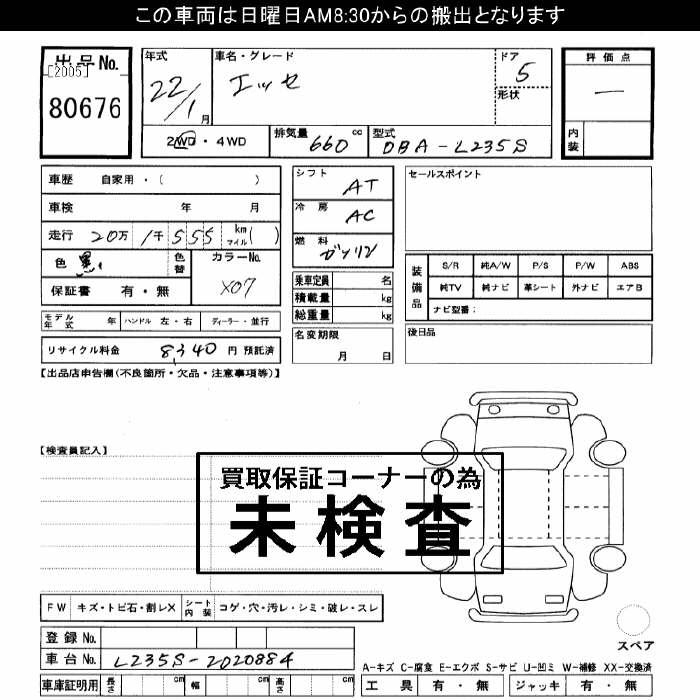 この車両は日曜日AM8:30からの搬出となります
出品No.
[2005]
80676
年式
22/1月
車名・グレード
エッセ
ドア
5
形状
評価点
—
内装
2WD・4WD
排気量 660 cc
型式 DBA-L235S
車歴 自家用・( )
車検 年 月
走行 20万 1千 555 km マイル( )
色 黒
色替
カラーNo.
X07
保証書 有・無
モデル年式 年
ハンドル 左・右
ディーラー・並行
リサイクル料金 8,340 円 預託済
シフト AT
冷房 AC
燃料 ガソリン
乗車定員 名
積載量 kg
総重量 kg
名変期限
月 日
セールスポイント
装備品
S/R 純A/W P/S P/W ABS
純TV 純ナビ 革シート 外ナビ エアB
ナビ型番:
後日品
【出品店申告欄(不良箇所・欠品・注意事項等)】
【検査員記入】
買取保証コーナーの為
未検査
FW キズ・トビ石・割レX
シート内装 コゲ・穴・汚レ・シミ・破レ・スレ
登録No.
車台No. L235S-2020884
車庫証明用 長さ cm 幅 cm 高さ cm
スペア
A-キズ C-腐食 E-エクボ S-サビ U-凹ミ W-補修 XX-交換済
工具 有・無 ジャッキ 有・無